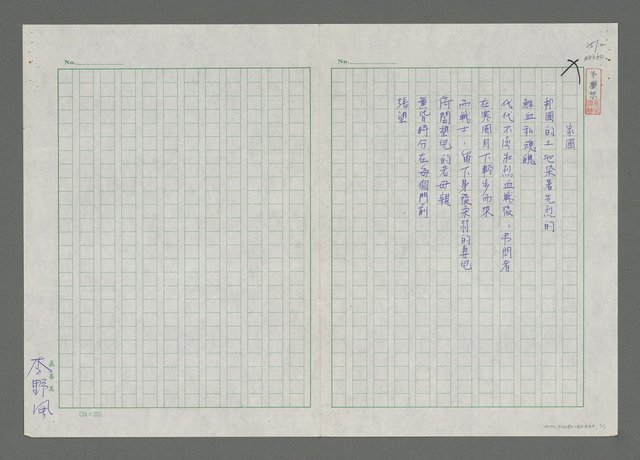 No.
家園
邦國的土地染著先烈的
鮮血和魂魄
代代不停壯烈血戰後，弔問者
在寒風月下輕步而來
而戰士，留下身後柔弱的妻兒
倚閭望兒的老母親
黃昏時分在每個門前
張望
No.
李野風
(24×25)